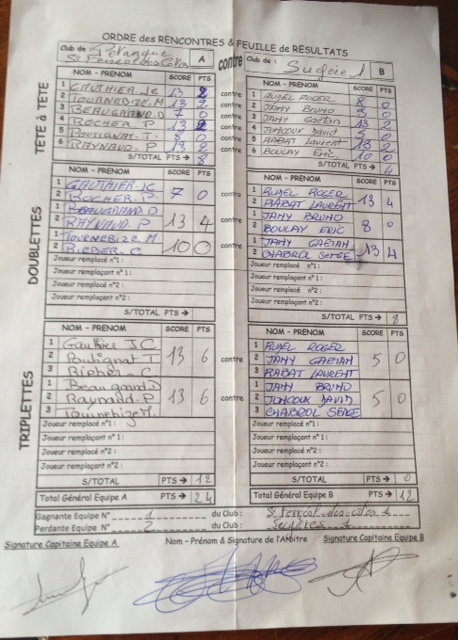 ORDRE des RENCONTRES & FEUILLE de RESULTATS
Club de : Pétanque A contre Club de : Sugère 1 B
TETE à TETE
NOM - PRENOM SCORE PTS NOM - PRENOM SCORE PTS
1 GAUTHIER JC 13 2 contre 1 RUAEL ROGER 8 0
2 TOURNEBIZE M 13 2 contre 2 JAMY BRUNO 0
3 BEAUGRAND D 7 0 contre 3 JAMY Gaëtan 13 2
4 ROCHER P 13 2 contre 4 JONCOUX David 0
5 0 contre 5 RABAT Laurent 13 2
6 RAYNAUD P 13 2 contre 6 BOULAY Eric 10 0
S/TOTAL PTS → 8 S/TOTAL PTS → 4
DOUBLETTES
NOM - PRENOM SCORE PTS NOM - PRENOM SCORE PTS
1 GAUTHIER JC 7 0 contre 1 RUAEL ROGER 13 4
2 ROCHER P. 2 RABAT LAURENT
1 BEAUGRAND D 13 4 contre 1 JAMY BRUNO 8 0
2 RAYNAUD P 2 BOULAY ERIC
1 TOURNEBIZE M. 10 0 contre 1 JAMY GAËTAN 13 4
2 C 2 CHABROL SERGE
Joueur remplacé n°1 : Joueur remplacé n°1 :
Joueur remplaçant n°1 : Joueur remplaçant n°1 :
Joueur remplacé n°2 : Joueur remplacé n°2 :
Joueur remplaçant n°2 : Joueur remplaçant n°2 :
S/TOTAL PTS → S/TOTAL PTS → 8
TRIPLETTES
NOM - PRENOM SCORE PTS NOM - PRENOM SCORE PTS
1 Gauthier J.C 13 6 contre 1 RUAEL ROGER 5 0
2 Poutignat T 2 JAMY GAETAN
3 C 3 RABAT LAURENT
1 Beaugrand D 13 6 contre 1 JAMY BRUNO 5 0
2 Raynaud.P 2 JONCOUX DAVID
3 Tournebize M. 3 CHABROL SERGE
Joueur remplacé n°1 : Joueur remplacé n°1 :
Joueur remplaçant n°1 : Joueur remplaçant n°1 :
Joueur remplacé n°2 : Joueur remplacé n°2 :
Joueur remplaçant n°2 : Joueur remplaçant n°2 :
S/TOTAL PTS → 12 S/TOTAL PTS → 0
Total Général Equipe A 24 Total Général Equipe B PTS → 12
Gagnante Equipe N° 1 du Club :
Perdante Equipe N° 2 du Club : Sugères 1
Signature Capitaine Equipe A Nom - Prénom & Signature de l'Arbitre Signature Capitaine Equipe B